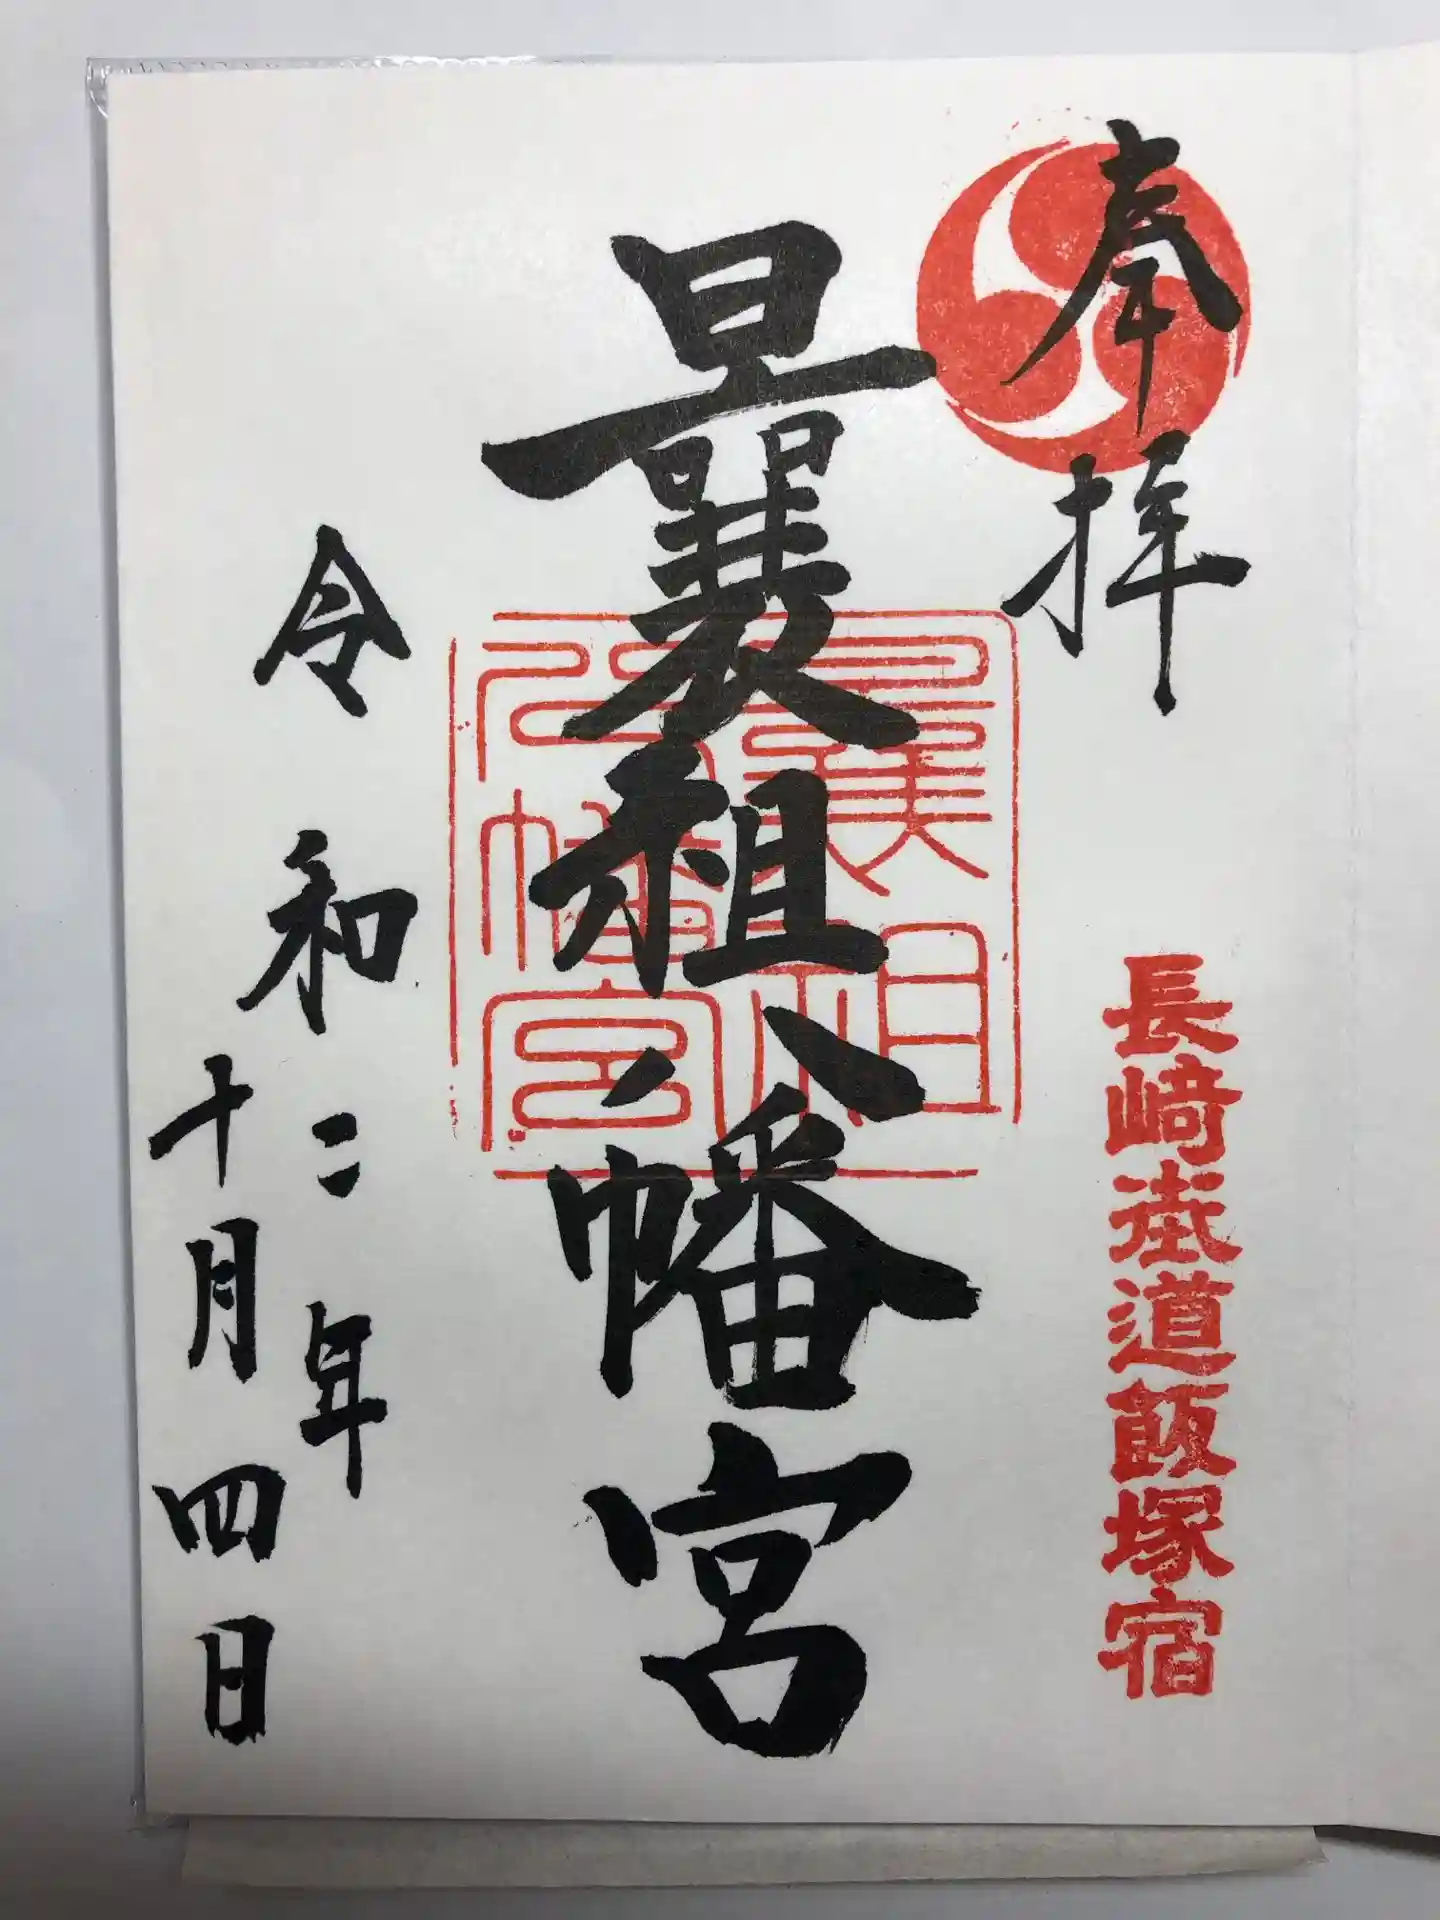 奉拝
長﨑街道飯塚宿
曩祖八幡宮
曩祖
八幡宮
令和二年
十月四日